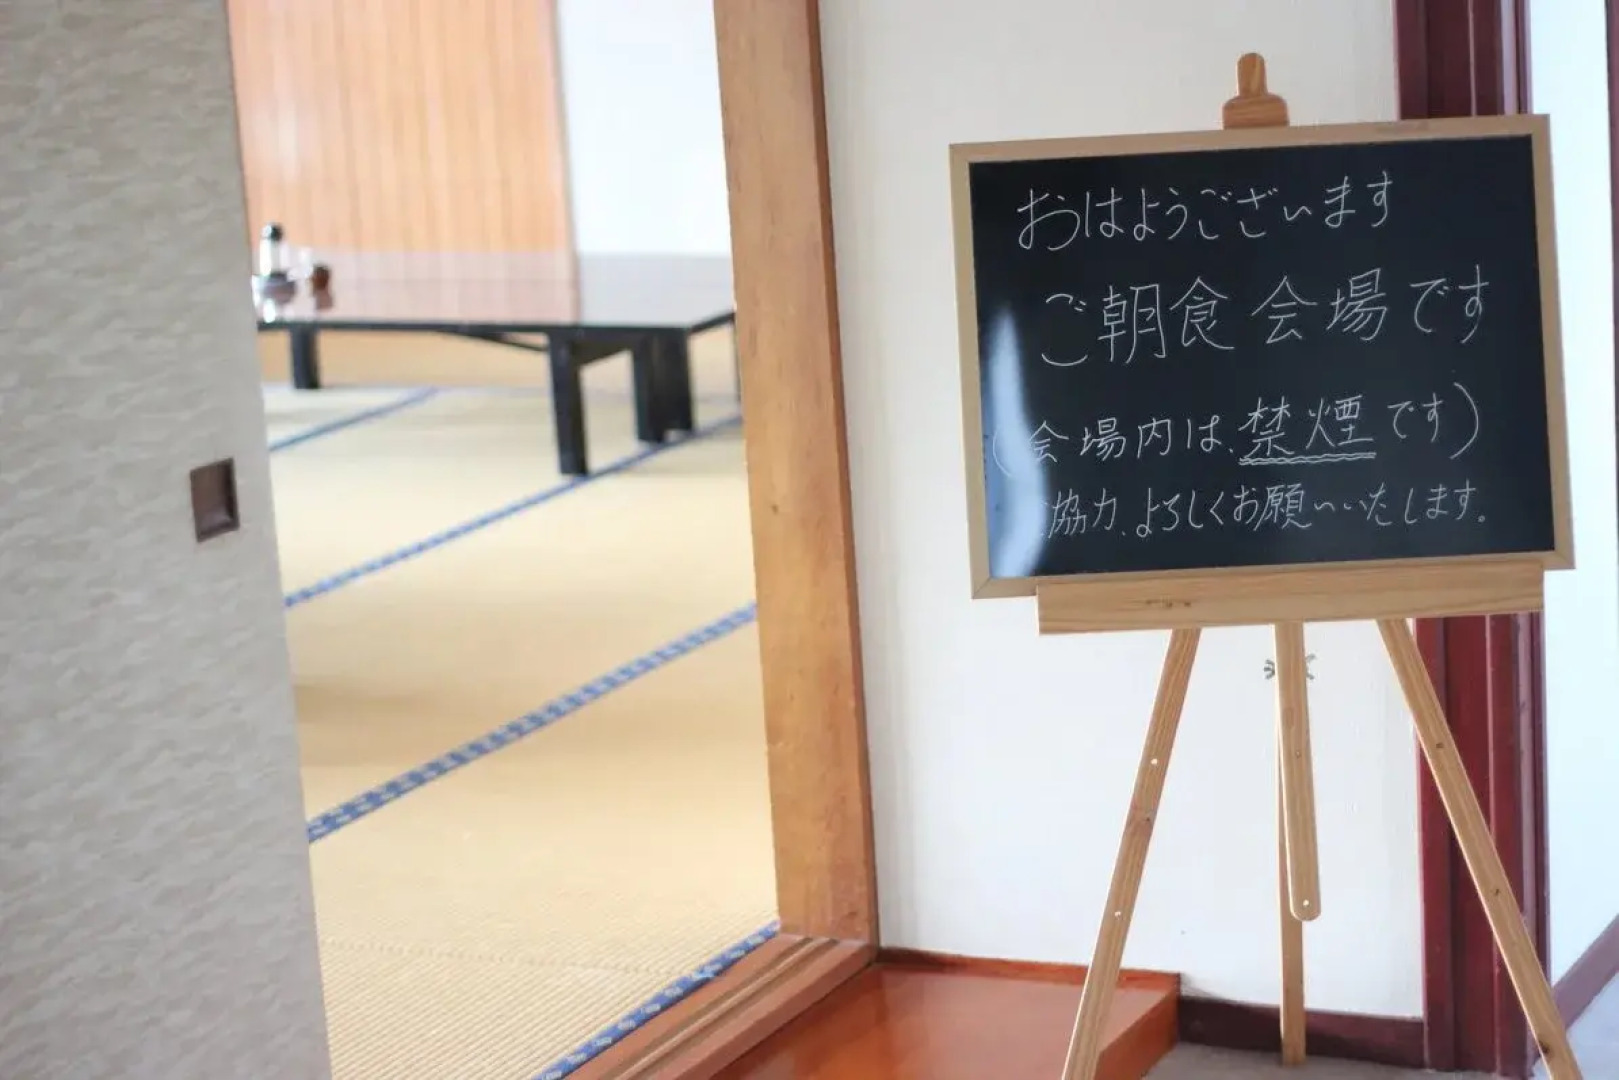 おはようございます
ご朝食会場です
(会場内は、禁煙です)
ご協力、よろしくお願いいたします。